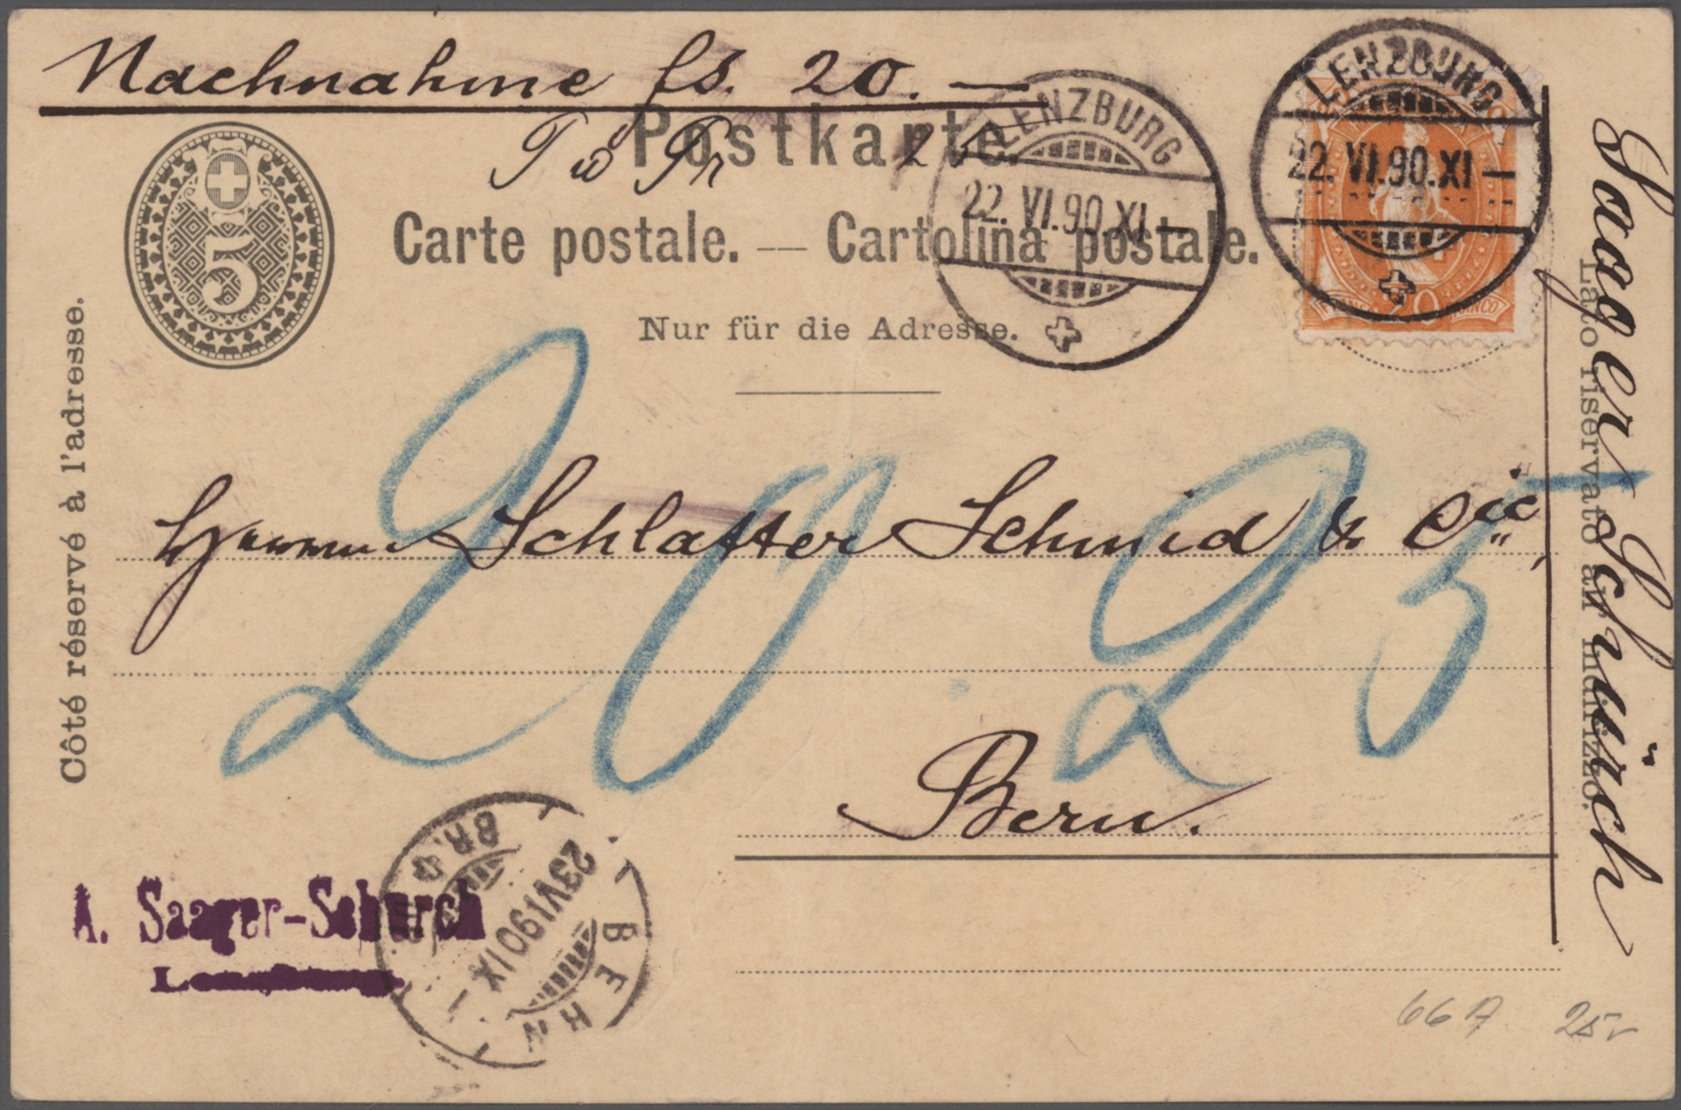 Nachnahme fs. 20. —
T w Pr 25
Postkarte.
Carte postale. — Cartolina postale.
Nur für die Adresse.
5
LENZBURG
22. VI. 90. XI —
LENZBURG
22. VI. 90. XI —
20
FRANCO
Côté réservé à l'adresse.
Lato riservato all' indirizzo.
Saager-Schürch
Herren Schlatter Schmid & Cie,
20.25
Bern.
A. Saager-Schürch
Lenzburg.
BERN
23 VI 90 IX
BR. 4
66 A
25.-